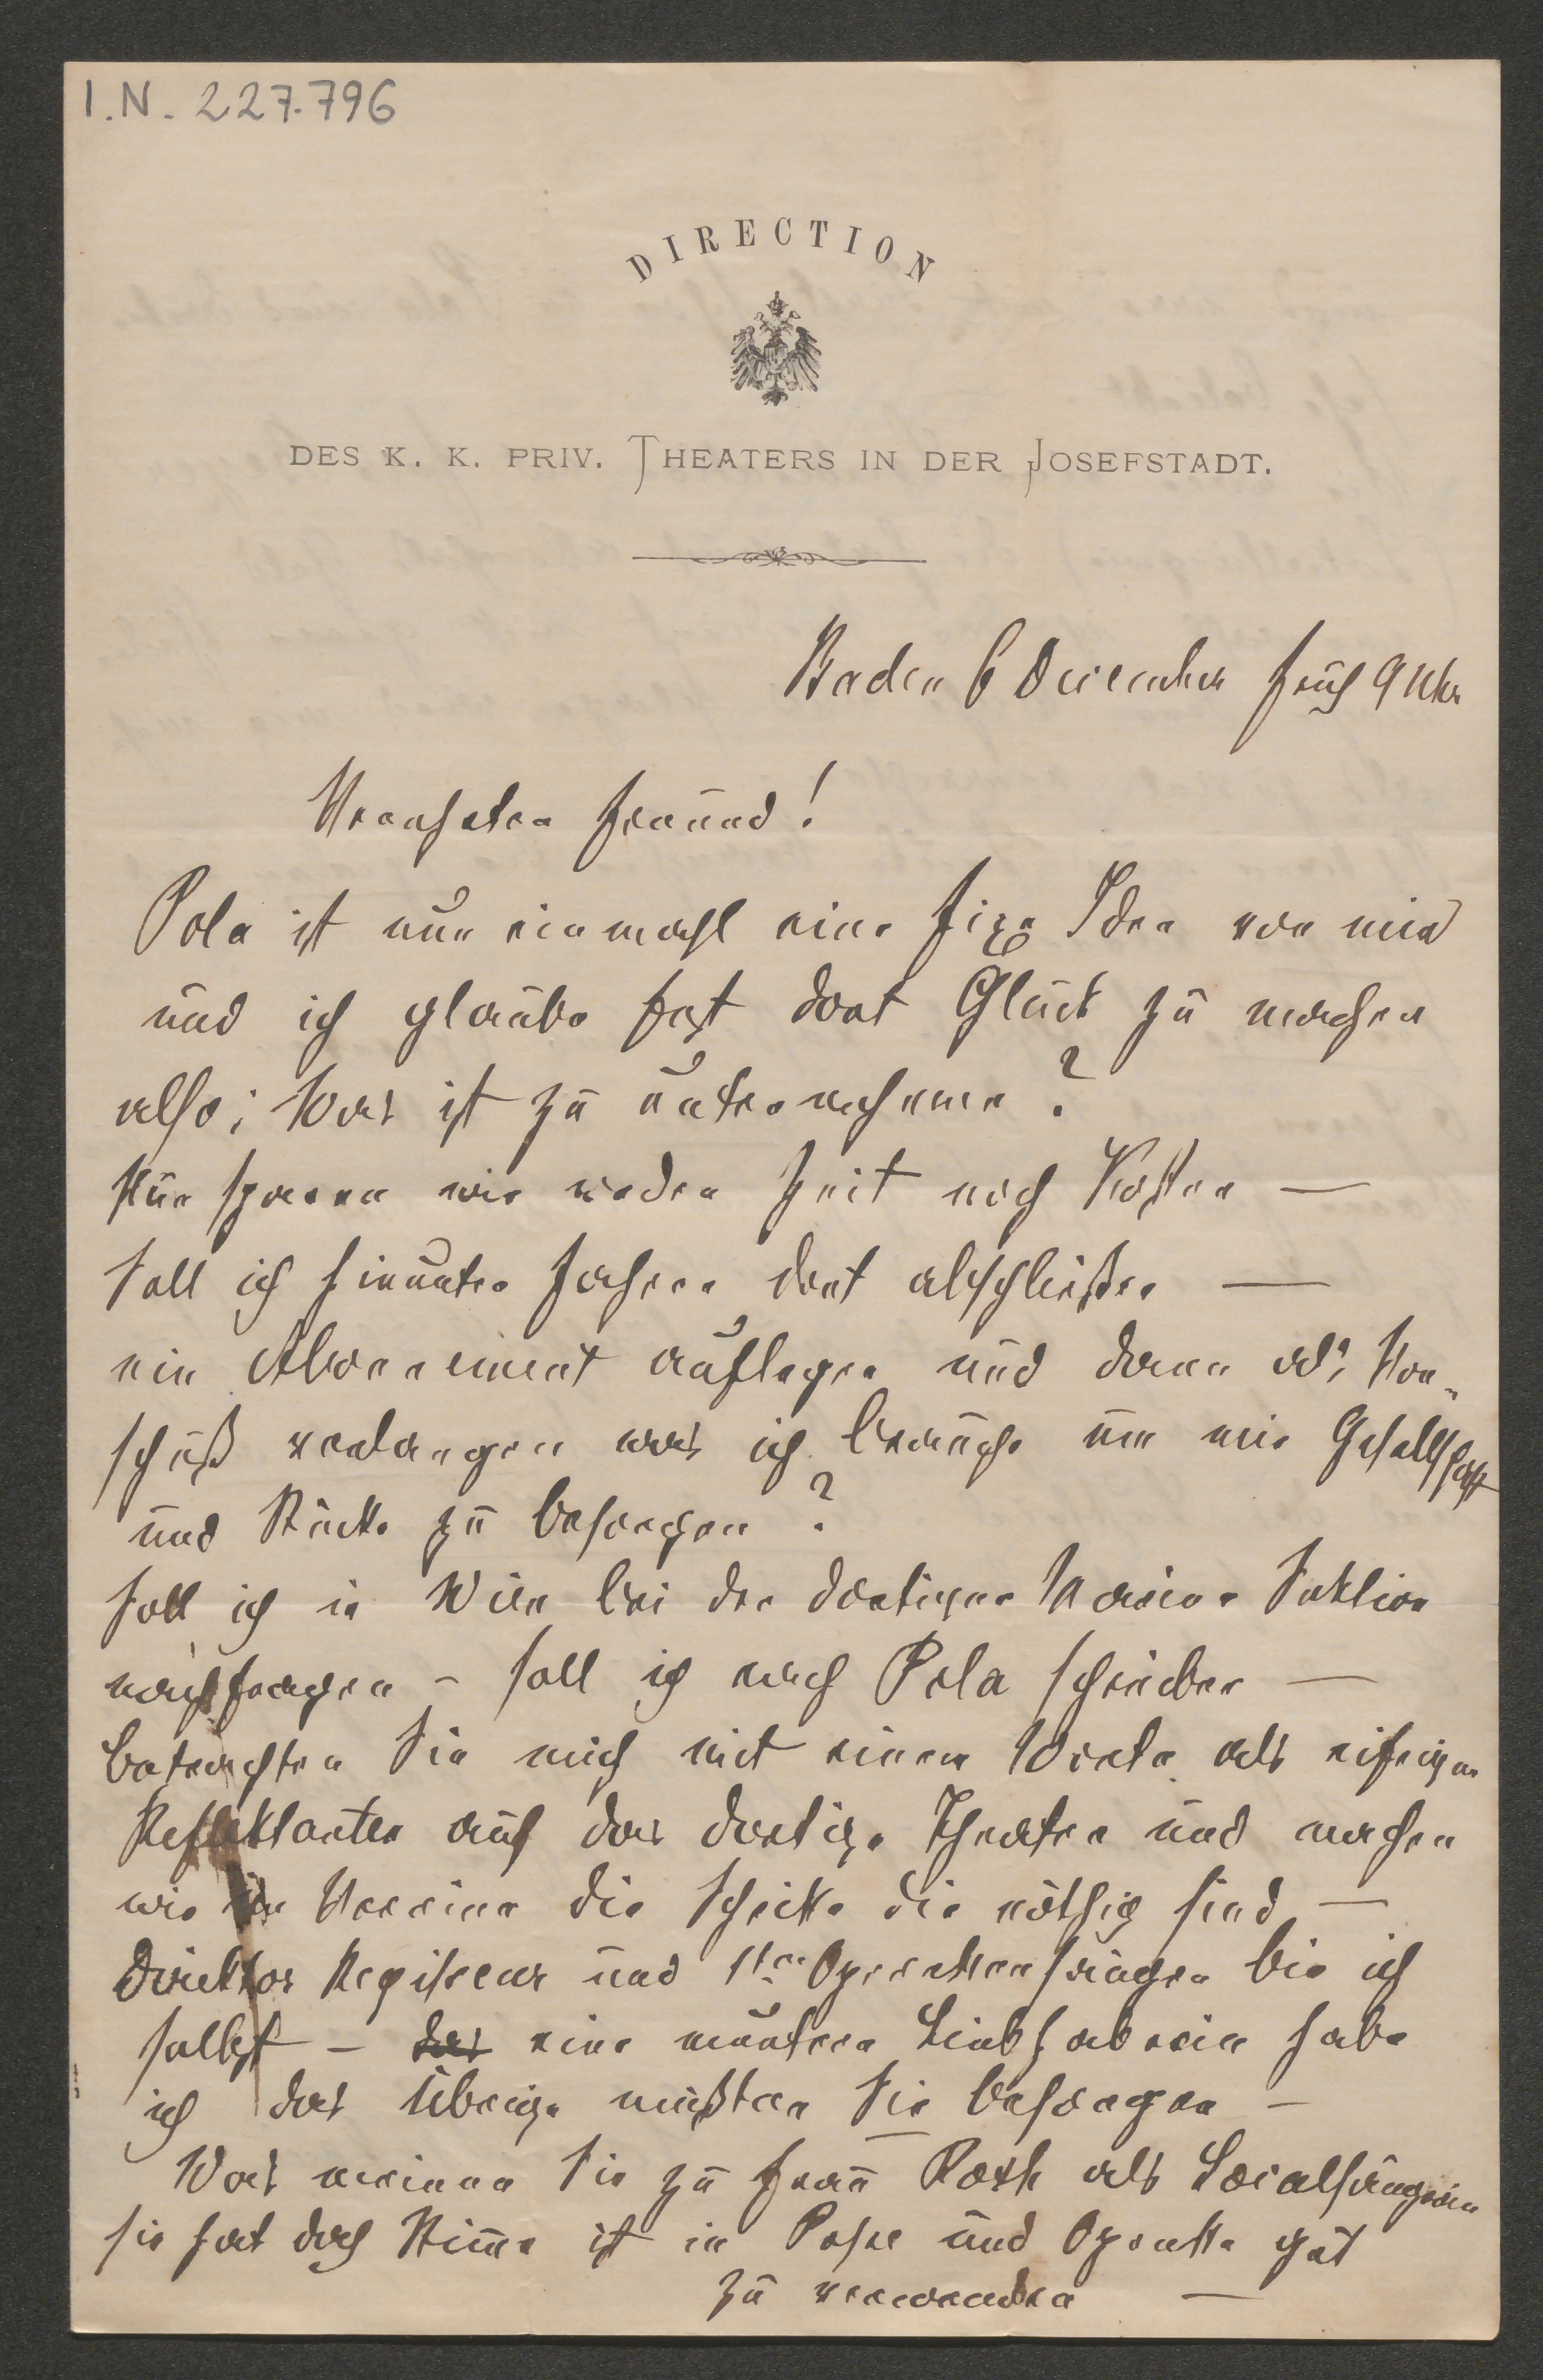 I.N. 227.796
DIRECTION
DES K. K. PRIV. THEATERS IN DER JOSEFSTADT.
Baden 6 December früh 9 Uhr
Verehrter Freund!
Pola ist nun einmahl eine fixe Idee von mir
und ich glaube fest dort Glück zu machen
also; Was ist zu unternehmen?
Nur sparen wir weder Zeit noch Kosten —
Soll ich hinunter fahren dort abschließen —
ein Abonnement auflegen und dann als Vor-
schuß verlangen was ich brauche um mir Gesellschaft
und Stücke zu besorgen?
soll ich in Wien bei der dortigen Marine Sektion
nachfragen – soll ich nach Pola schreiben —
betrachten Sie mich mit einem Worte als eifrigen
Reflektanten auf das dortige Theater und machen
wir im Vereine die Schritte die nöthig sind —
Direktor Regisseur und 1ter Operettensänger bin ich
selbst – das eine muntere Liebhaberin habe
ich das Übrige müßten Sie besorgen –
Was meinen Sie zu Frau Roth als Localsängerin
sie hat doch Stimme ist in Posse und Operette gut
zu verwenden —